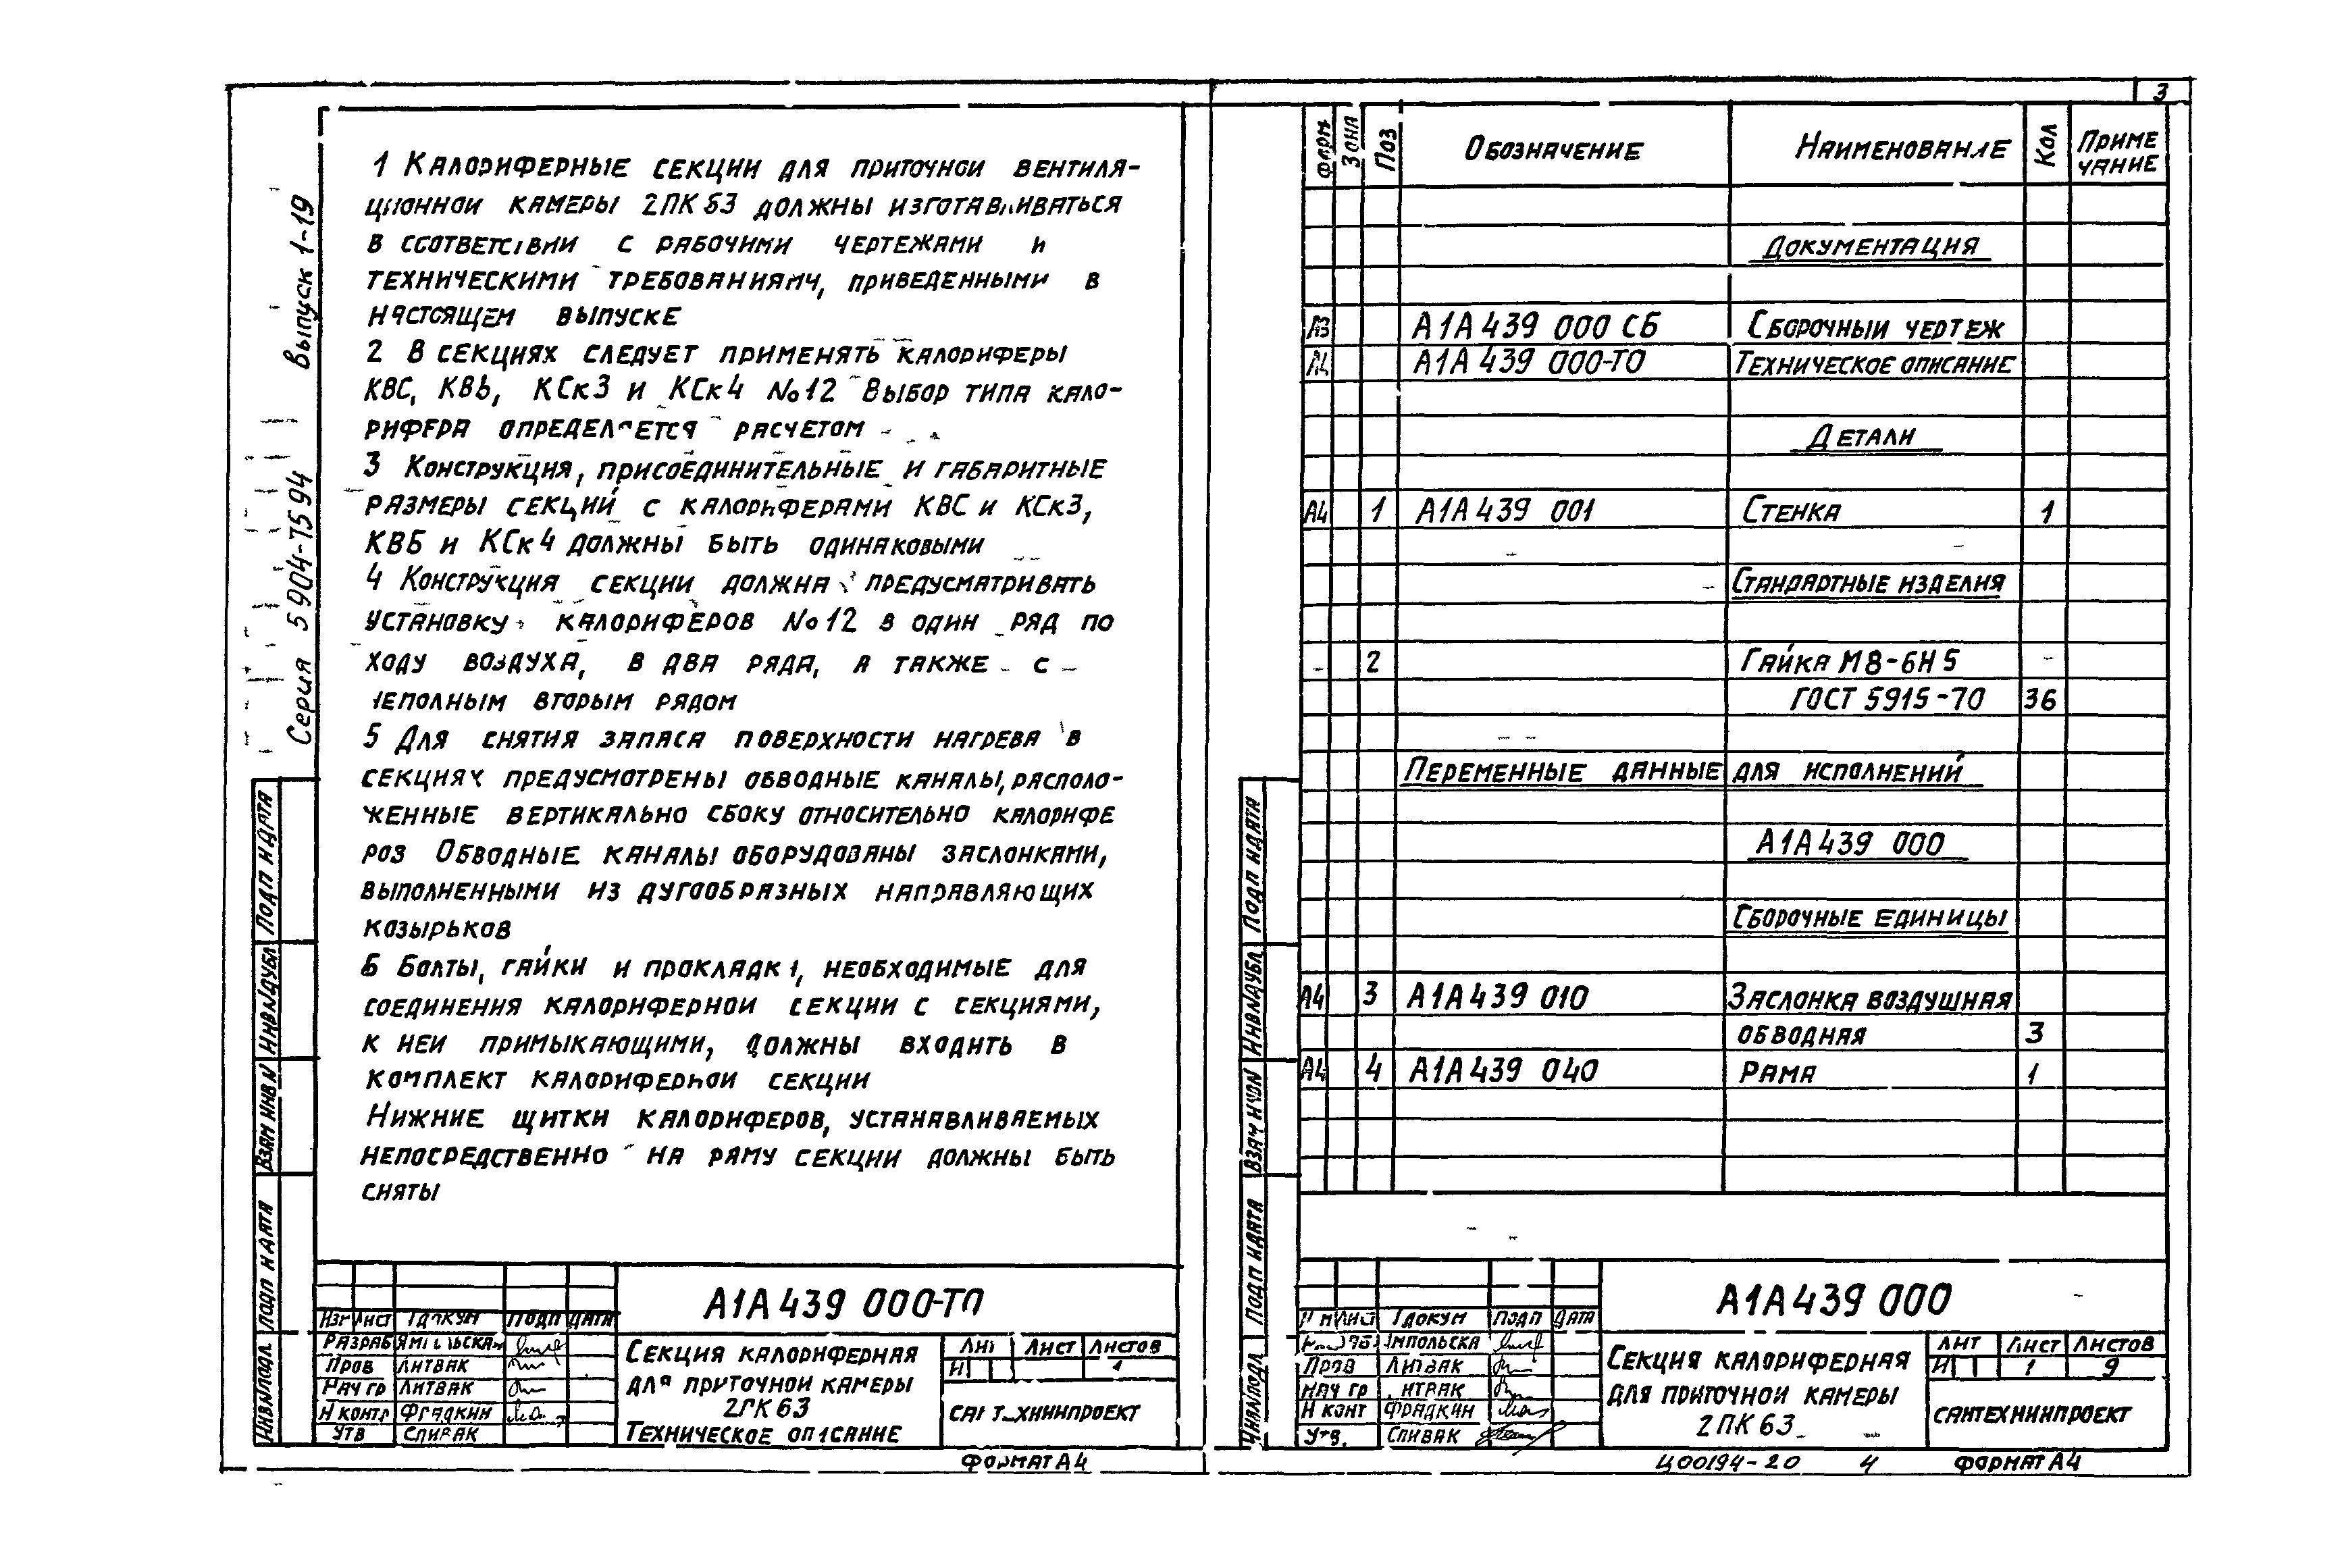 3
Серия 5 904-Т5 94 Выпуск 1-19
1 Калориферные секции для приточной вентиля-
ционной камеры 2ПК 63 должны изготавливаться
в соответствии с рабочими чертежами и
техническими требованиями, приведенными в
настоящем выпуске
2 В секциях следует применять калориферы
КВС, КВБ, КСк3 и КСк4 №12 Выбор типа кало-
рифера определяется расчетом
3 Конструкция, присоединительные и габаритные
размеры секций с калориферами КВС и КСк3,
КВБ и КСк4 должны быть одинаковыми
4 Конструкция секции должна предусматривать
установку калориферов №12 в один ряд по
ходу воздуха, в два ряда, а также с
неполным вторым рядом
5 Для снятия запаса поверхности нагрева в
секциях предусмотрены обводные каналы, располо-
женные вертикально сбоку относительно калорифе
ров Обводные каналы оборудованы заслонками,
выполненными из дугообразных направляющих
козырьков
6 Болты, гайки и прокладки, необходимые для
соединения калориферной секции с секциями,
к ней примыкающими, должны входить в
комплект калориферной секции
Нижние щитки калориферов, устанавливаемых
непосредственно на раму секции должны быть
сняты
Инв№подл Подп и дата Взам инв№ Инв№дубл Подп и дата
А1А439 000-ТО
Изм Лист №докум Подп Дата
Разраб Ямпольская
Пров Литвак
Нач гр Литвак
Н контр Фрадкин
Утв Спивак
Секция калориферная
для приточной камеры
2ПК 63
Техническое описание
Лит Лист Листов
И 1
Сантехниипроект
Формат А4
Форм Зона Поз Обозначение Наименование Кол Приме
чание
Документация
А3 А1А439 000 СБ Сборочный чертеж
А4 А1А439 000-ТО Техническое описание
Детали
А4 1 А1А439 001 Стенка 1
Стандартные изделия
2 Гайка М8-6Н 5
ГОСТ 5915-70 36
Переменные данные для исполнений
А1А439 000
Сборочные единицы
А4 3 А1А439 010 Заслонка воздушная
обводная 3
А4 4 А1А439 040 Рама 1
Инв№подл Подп и дата Взам инв№ Инв№дубл Подп и дата
А1А439 000
Изм Лист №докум Подп Дата
Разраб Ямпольска
Пров Литвак
Нач гр Литвак
Н конт Фрадкин
Утв. Спивак
Секция калориферная
для приточной камеры
2ПК 63
Лит Лист Листов
И 1 9
Сантехниипроект
Ц00194-20 4 Формат А4